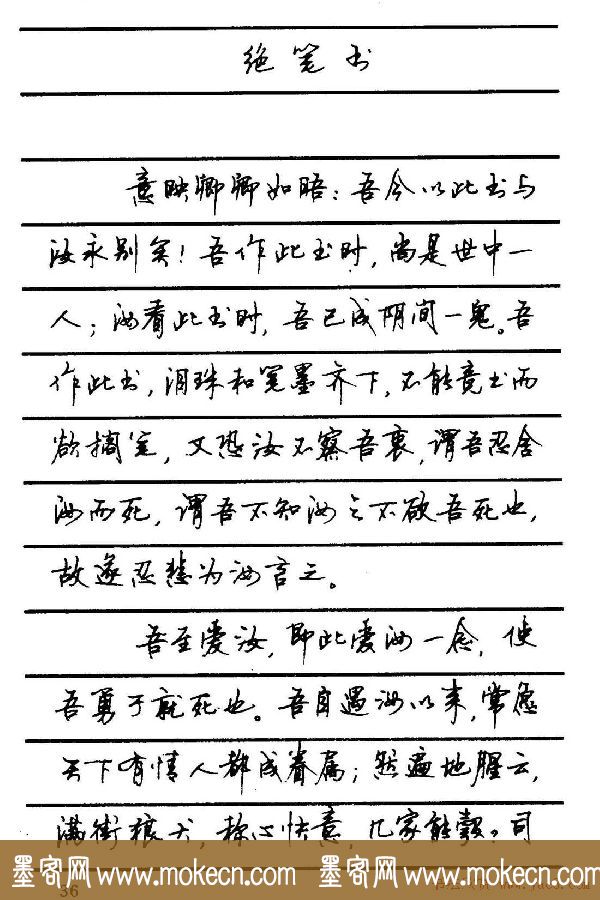 绝笔书
意映卿卿如晤：吾今以此书与
汝永别矣！吾作此书时，尚是世中一
人；汝看此书时，吾已成阴间一鬼。吾
作此书，泪珠和笔墨齐下，不能竟书而
欲搁笔，又恐汝不察吾衷，谓吾忍舍
汝而死，谓吾不知汝之不欲吾死也，
故遂忍悲为汝言之。
吾至爱汝，即此爱汝一念，使
吾勇于就死也。吾自遇汝以来，常愿
天下有情人都成眷属；然遍地腥云，
满街狼犬，称心快意，几家能彀？司
墨客网 www.mokecn.com 墨客网 www.mokecn.com
36